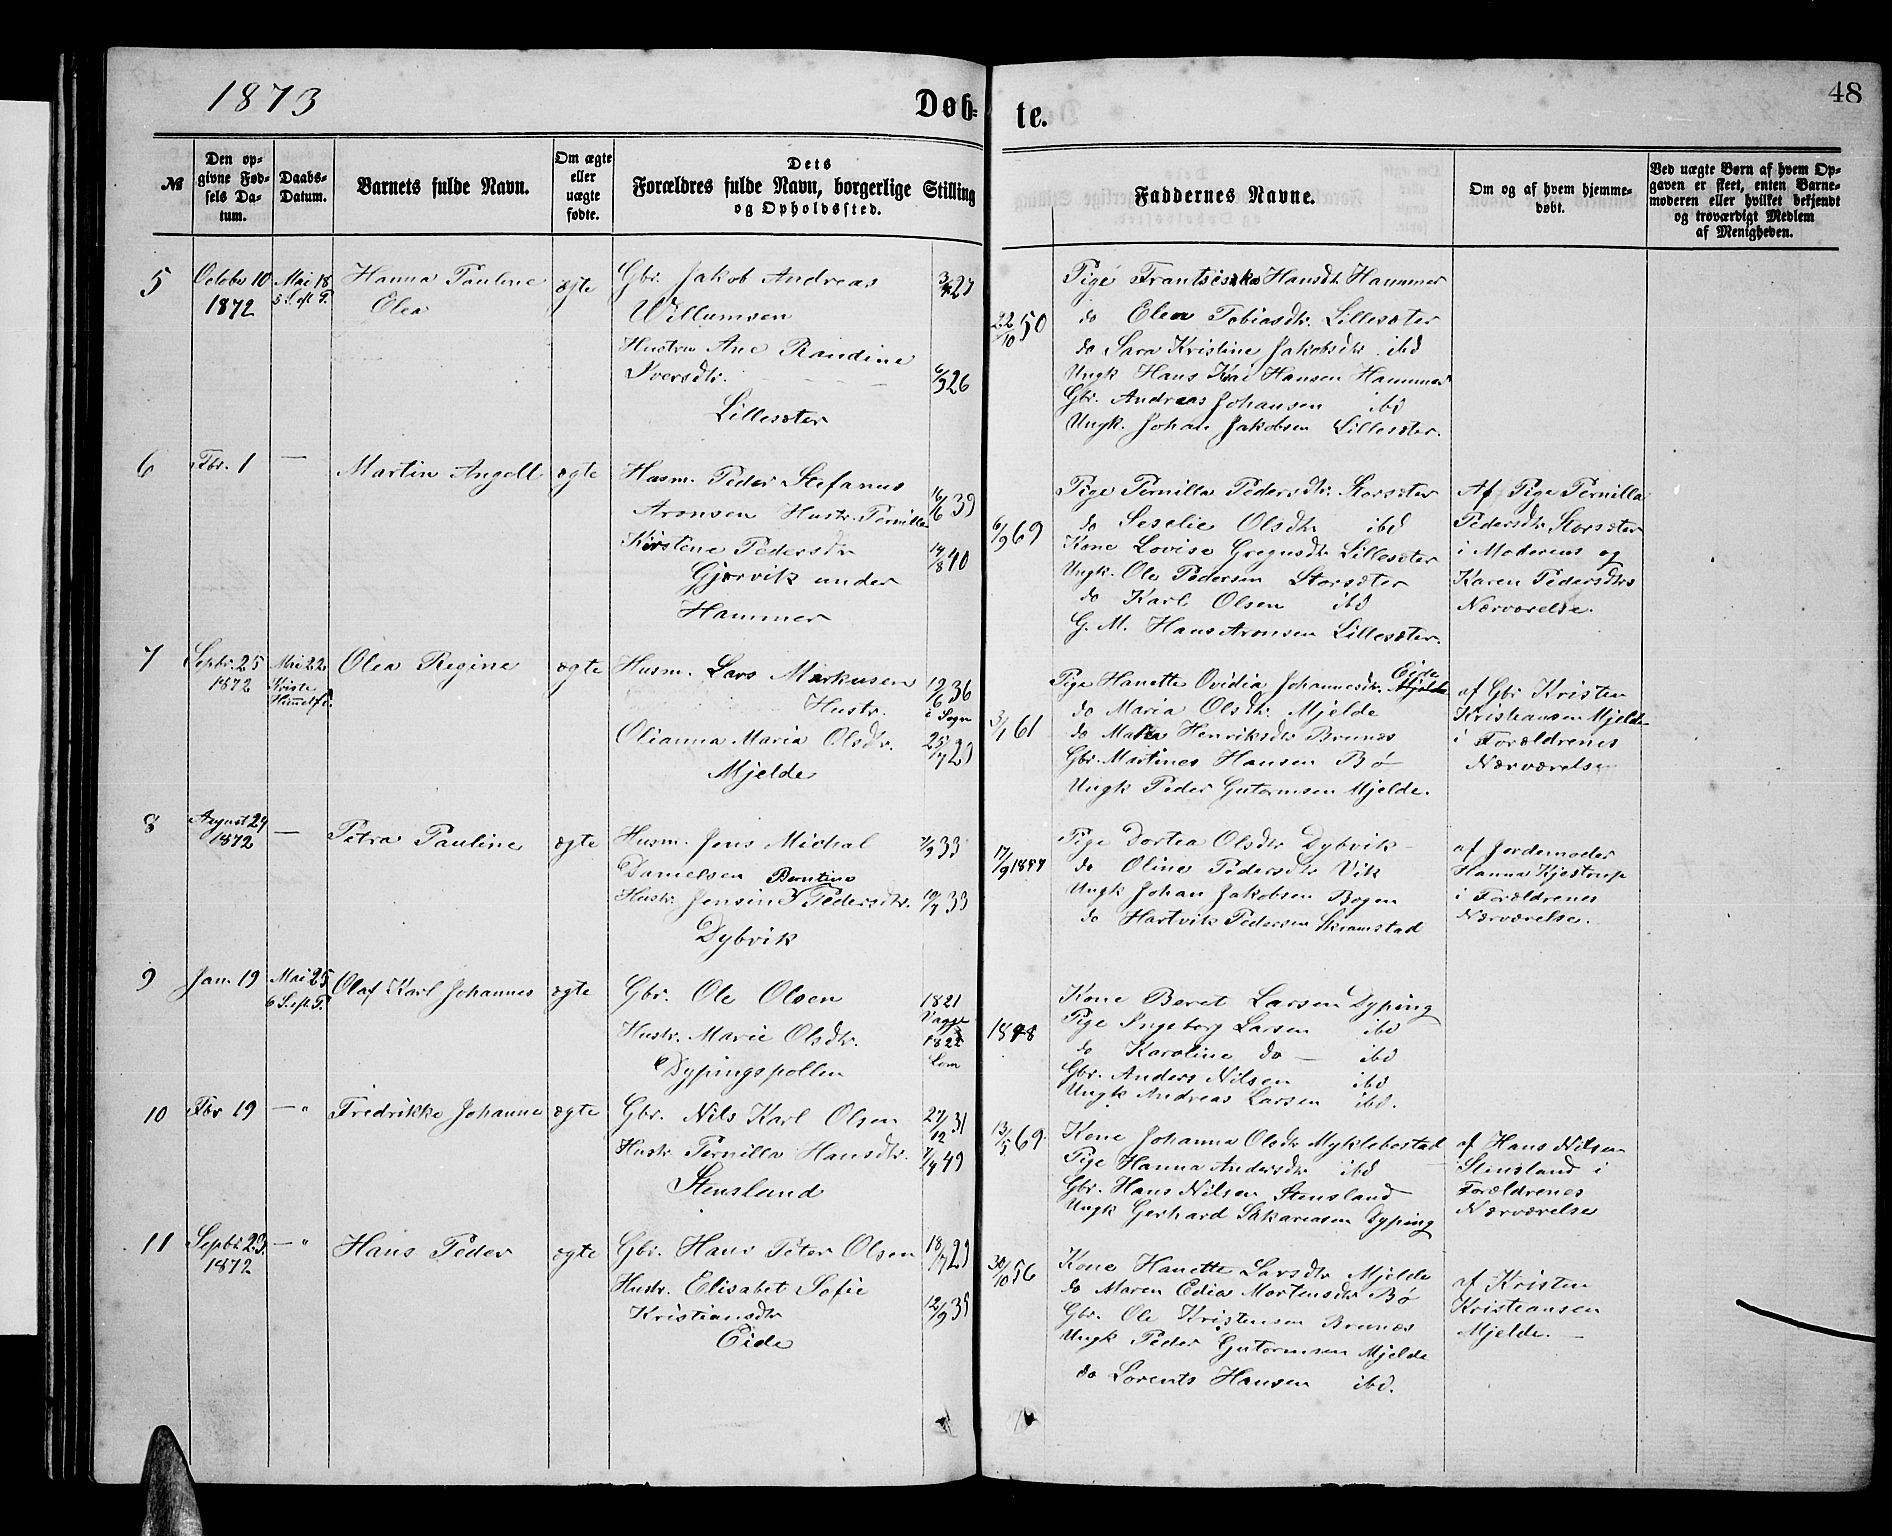 1873
Døb-
te.
48
№
Den op-
givne Fød-
sels Da-
tum.
Daabs-
Datum.
Barnets fulde Navn.
Om ægte
eller
uægte
fødte.
Dets
Forældres fulde Navn, borgerlige Stilling
og Opholdssted.
Faddernes Navne.
Om og af hvem hjemme-
døbt.
Ved uægte Børn af hvem Op-
gaven er skeet, enten Barne-
moderen eller hvilket bekjendt
og troværdigt Medlem
af Menigheden.
5
October 10
1872
Mai 18
5 S. eft P.
Hanna Pauline
Olea
ægte
Gbr. Jakob Andreas
Willumsen
Hustru Ane Randine
Iversdtr.
Lillesæter
27
6/3 26
22/10 50
Pige Frantsiska Hansdtr Hammer
do Elen Tobiasdtr. Lillesæter
do Sara Kristine Jakobsdtr ibd
Ungk Hans Kai Hansen Hammer
Gbr. Andreas Johansen ibd
Ungk. Johan Jakobsen Lillesæter.
6
Fbr. 1
—
Martin Angell
ægte
Husm. Peder Stefanus
Aronsen Hustr. Pernilla
Kirstene Pedersdtr
Gjørvik under
Hammer
16/6 39
14/8 40
6/9 69
Pige Pernilla Pedersdtr. Storsæter
do Seselie Olsdtr ibd
Kone Lovise Gregusdtr Lillesæter
Ungk. Ole Pedersen Storsæter
do Karl Olsen ibd
G. M. Hans Aronsen Lillesæter.
Af Pige Pernilla
Pedersdtr Storsæter
i Moderens og
Karen Pedersdtrs
Nærværelse.
7
Septbr. 25
1872
Mai 22
Kristi
Himmelf.
Olea Regine
ægte
Husm. Lars Markusen
Hustr.
Olianna Maria Olsdtr.
Mjelde
19/6 36
i Sogn
25/7 29
3/1 61
Pige Hanette Ovidia Johannesdtr. Eide
do Maria Olsdtr. Mjelde
do Henriksdtr Brunes
Gbr. Martines Hansen Bø
Ungk Peder Gutormsen Mjelde.
af Gbr Kristen
Kristiansen Mjelde
i Forældrenes
Nærværelse
8
August 29
1872
—
Petra Pauline
ægte
Husm. Jens Michal
Danielsen
Berntine
Hustr. Jensine Pedersdtr.
Dybvik
33
19/7 33
17/9 1857
Pige Dortea Olsdtr Dybvik
do Oline Pedersdtr Vik
Ungk Johan Jakobsen Bogen
do Hartvik Pedersen Skramstad
af Jordemoder
Hanna Kjestrup
i Forældrenes
Nærværelse.
9
Jan. 19
Mai 25
6 S. eft P.
Olaf Karl Johannes
ægte
Gbr. Ole Olsen
Hustr. Marie Olsdtr.
Dypingspollen
1821
Vaage
1822
Lom
1848
Kone Beret Larsen Dyping
Pige Ingeborg Larsen ibd
do Karoline do — ibd
Gbr. Anders Nilsen ibd
Ungk Andreas Larsen ibd.
10
Fbr 19
— "
Fredrikke Johanne
ægte
Gbr. Nils Karl Olsen
Hustr Pernilla Hansdtr.
Stensland
27/12 31
7/4 49
13/5 69
Kone Johanna Olsdtr Myklebostad
Pige Hanna Andersdtr ibd
Gbr. Hans Nilsen Stensland
Ungk Gerhard Sakariasen Dyping
af Hans Nilsen
Stensland i
Forældrenes
Nærværelse
11
Septbr 23.
1872
— "
Hans Peder
ægte
Gbr. Hans Peter Olsen
Hustr. Elisabet Sofie
Kristiansdtr
Eide
18/7 29
12/9 35
30/10 56
Kone Hanette Larsdtr Mjelde
do Maren Edia Mortensdtr Bø
Gbr. Ole Kristensen Brunes
Ungk Peder Gutormsen Mjelde
do Lorents Hansen ibd.
af Kristen
Kristiansen
Mjelde. —